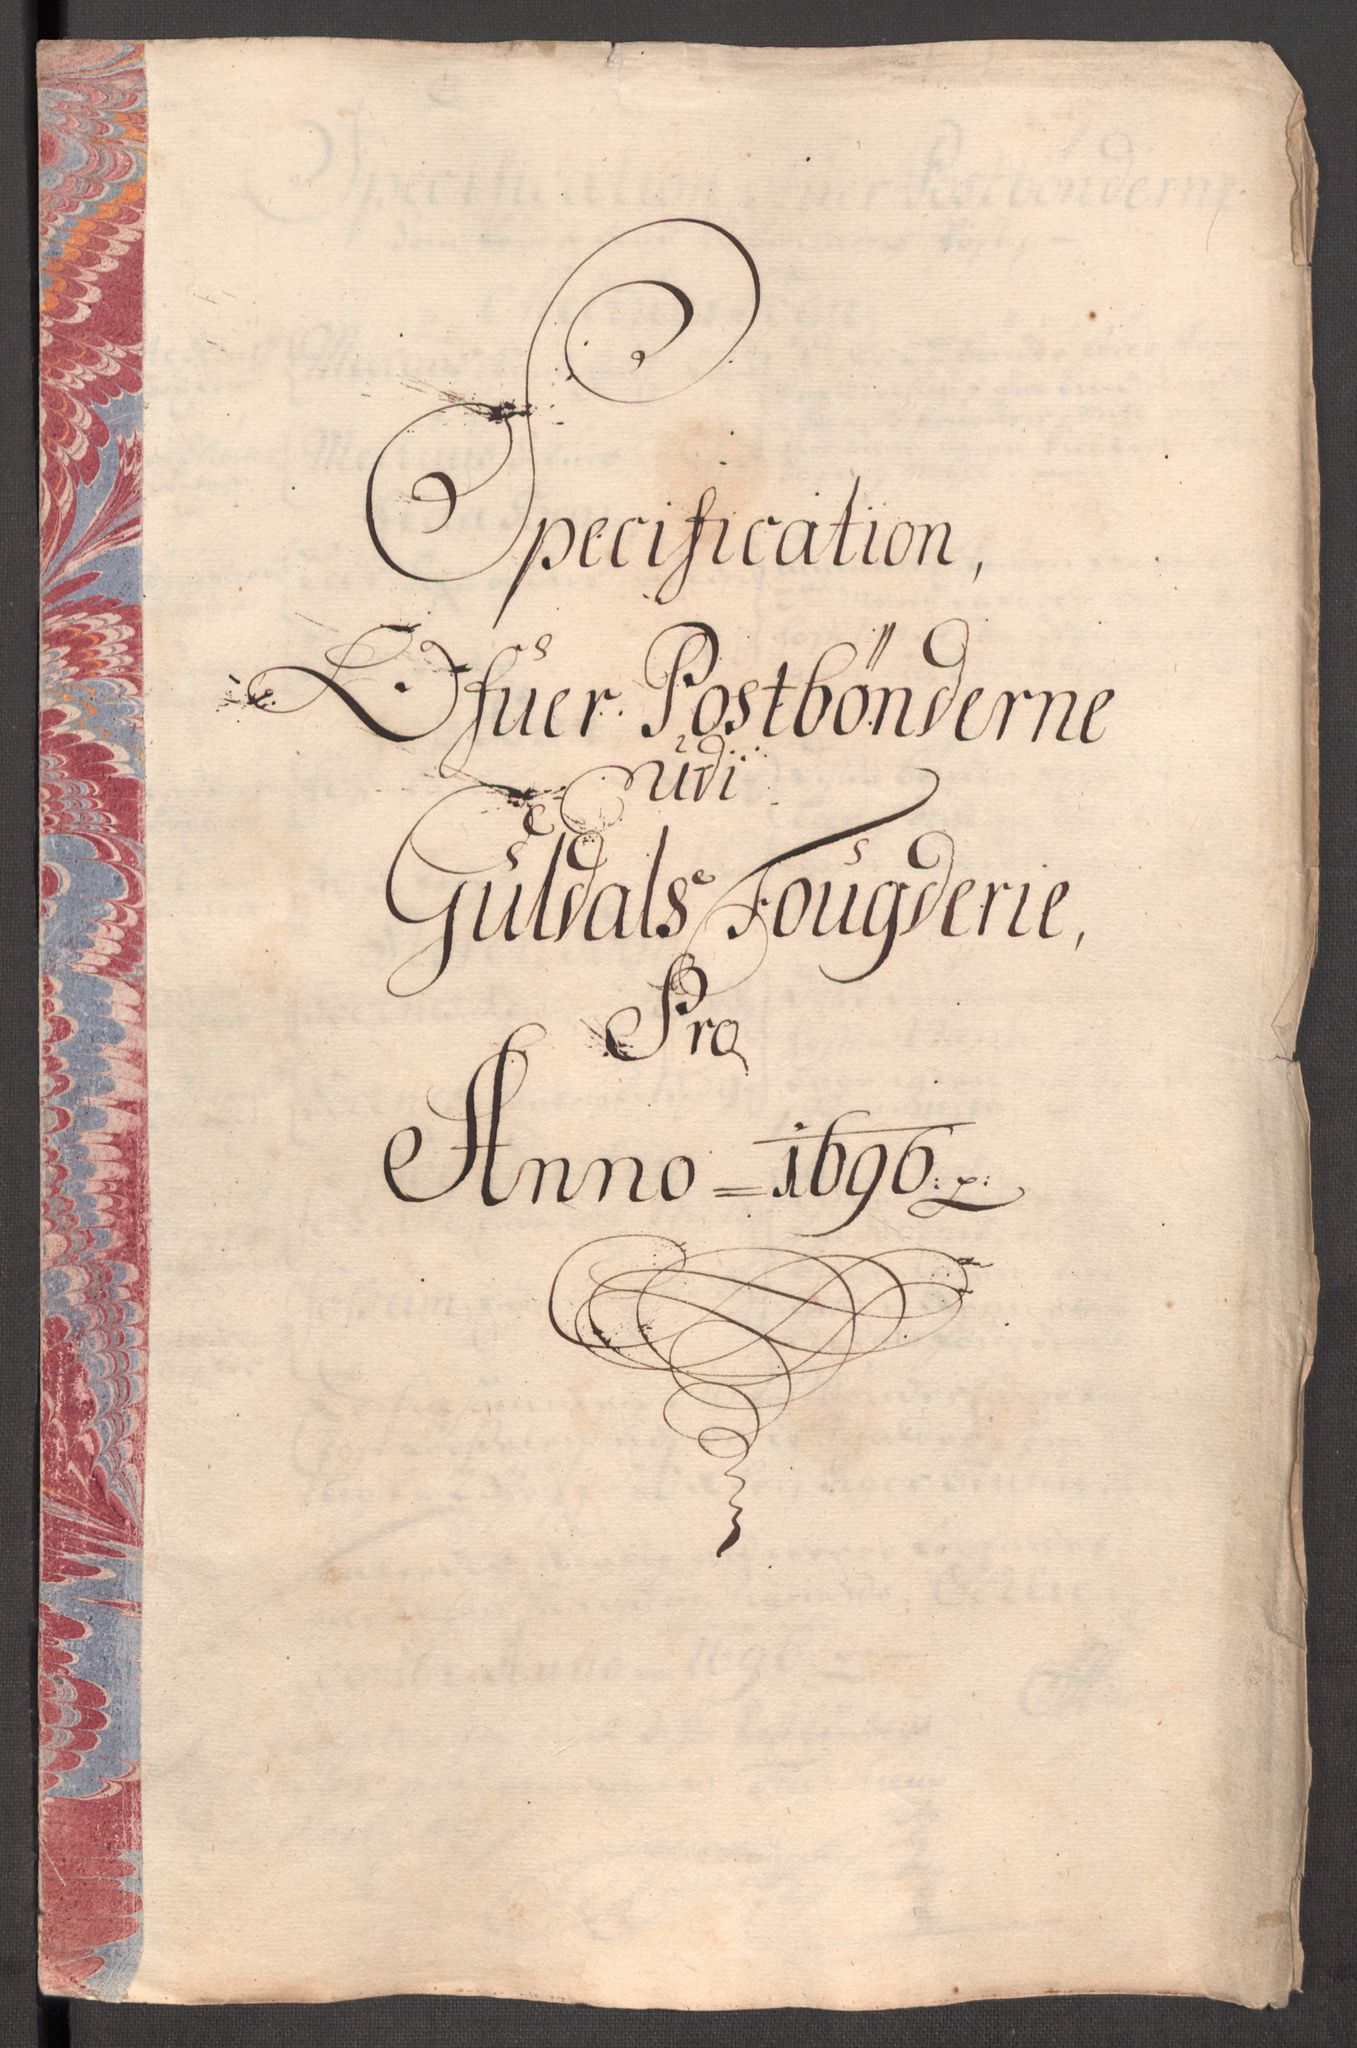 Specification,
Ofuer Postbønderne
udi
Guldals Fougderie,
Pro
Anno = 1696